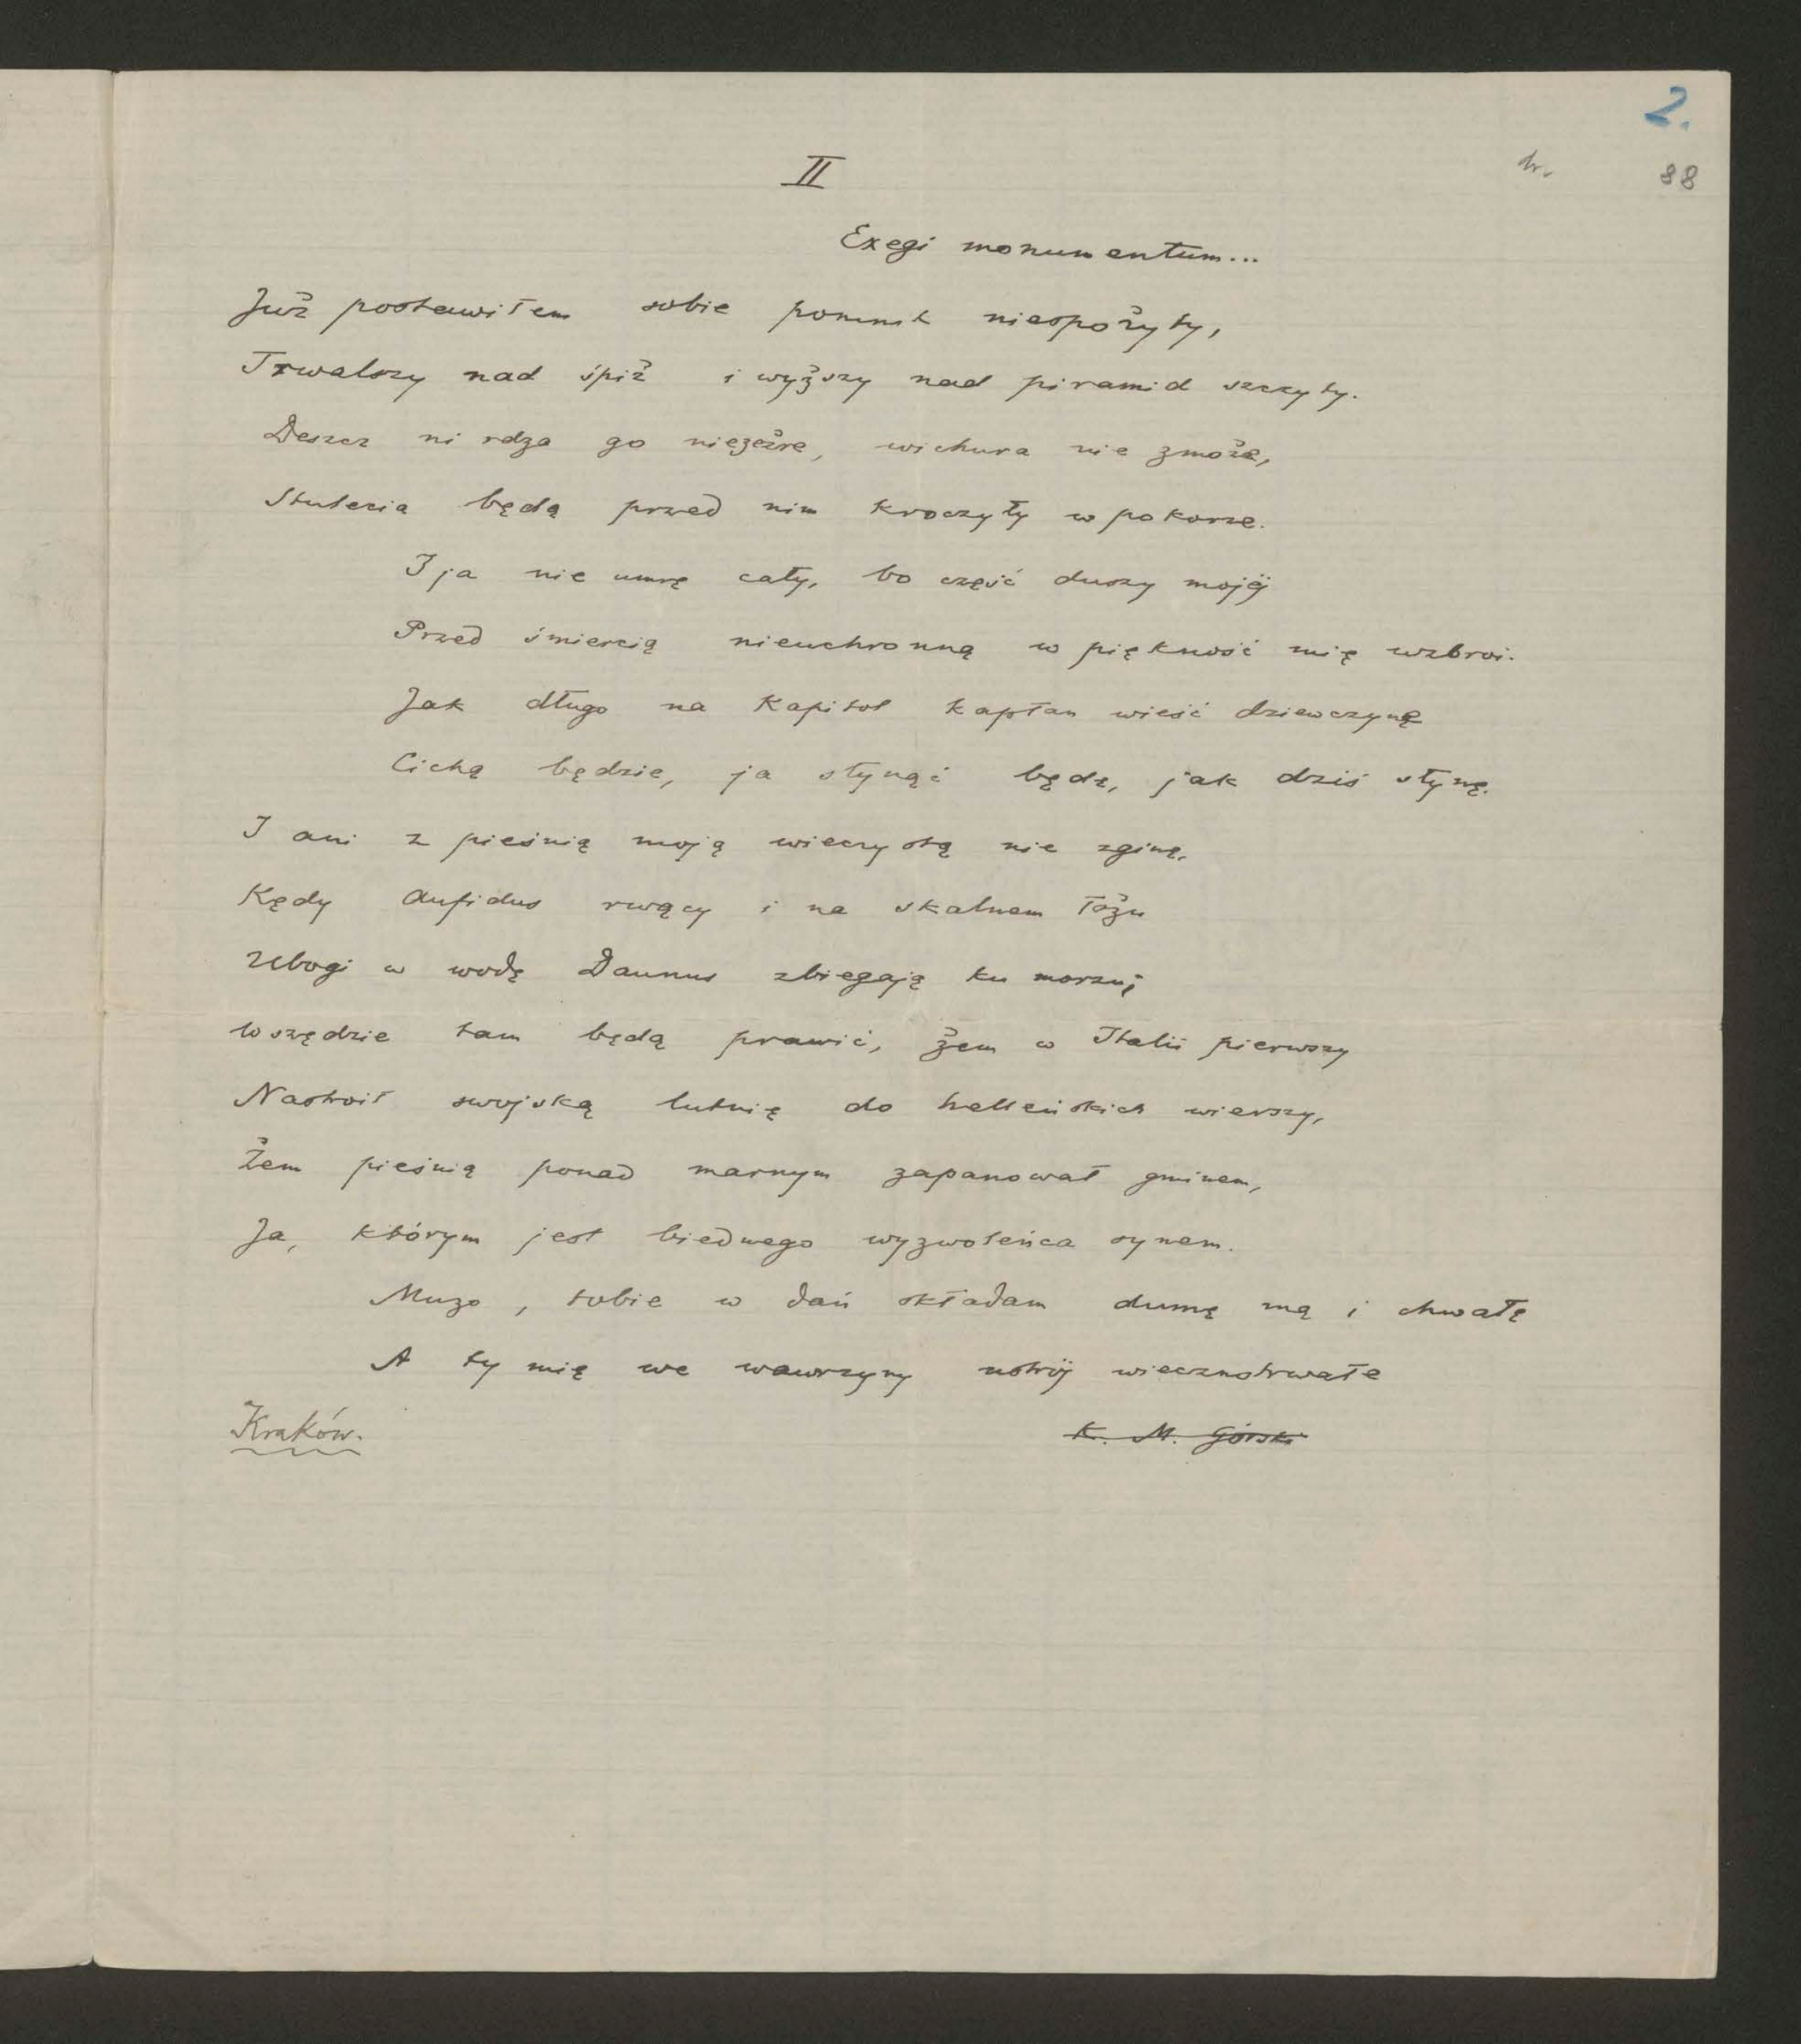 2.
88
II
Exegi monumentum...
Już postawiłem sobie pomnik niespożyty,
Trwalszy nad śpiż i wyższy nad piramid szczyty.
Deszcz ni rdza go niezeżre, wichura nie zmoże,
Stulecia będą przed nim kroczyły w pokorze.
I ja nie umrę cały, bo część duszy mojéj
Przed śmiercią nieuchronną w piękność mię uzbroi.
Jak długo na Kapitol kapłan wieść dziewczynę
Cichą będzie, ja słynąć będę, jak dziś słynę.
I ani z pieśnią moją wieczystą nie zginę,
Kędy Aufidus rwący i na skalnem łożu
Ubogi w wodę Daunus zbiegają ku morzu;
Wszędzie tam będą prawić, żem w Italii pierwszy
Nastroił swojską lutnię do helleńskich wierszy,
Żem pieśnią ponad marnym zapanował gminem,
Ja, którym jest biednego wyzwoleńca synem.
Muzo, tobie w dań składam dumę mą i chwałę
A ty mię we wawrzyny ustrój wiecznotrwałe
Kraków. K. M. Górski